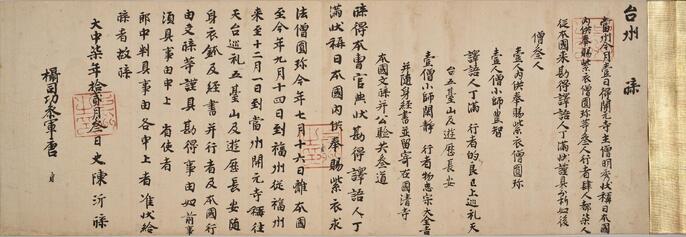 台州 牒
當州今月壹日得開元寺主僧明秀狀稱日本國
內供奉賜紫衣僧圓珍等叁人行者肆人都柒人
從本國來勘得譯語人丁滿狀謹具分析如後
僧叁人
壹人內供奉賜紫衣僧圓珍
壹人僧小師豊智
壹僧小師閑靜 行者物忠宗 大全吉
譯語人丁滿 行者的良 已上巡礼天
台五臺山及遊歷長安
并隨身經書並留寄在國清寺
本國文牒并公驗共叁道
牒得本曹官典狀勘得譯語人丁
滿狀稱日本國內供奉賜紫衣求
法僧圓珍今年七月十六離本國
至今年九月十四日到福州從福州
來至十二月一日到當州開元寺稱往
天台巡礼五臺山及遊歷長安隨
身衣鉢及經書并行者及本國行
由文牒等謹具勘得事由如前事
須具事由申上省使者
郎中判具事由各申上者准狀給
牒者故牒
大中柒年拾貳月叁日史陳沂牒
攝司功參軍唐